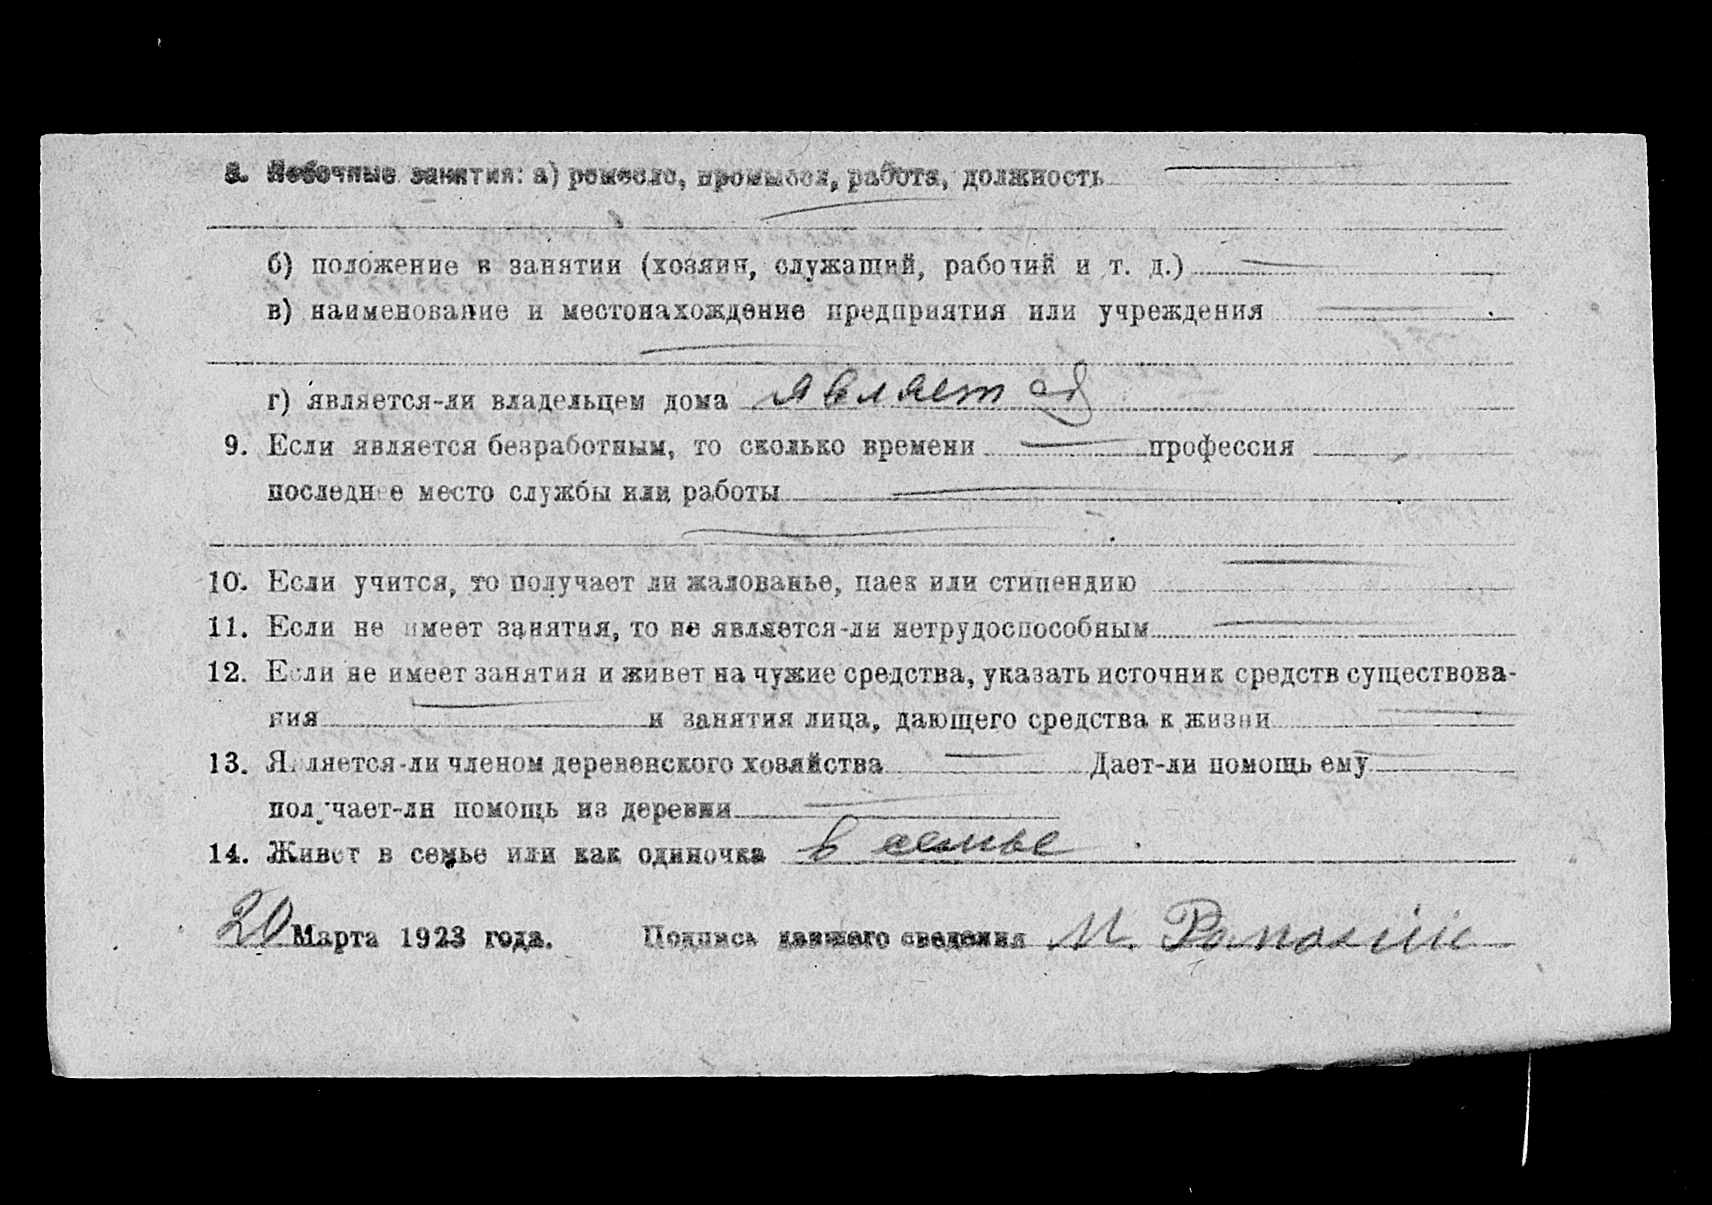 8. Побочные занятия: а) ремесло, промысел, работа, должность
б) положение в занятии (хозяин, служащий, рабочий и т. д.)
в) наименование и местонахождение предприятия или учреждения
г) является-ли владельцем дома является
9. Если является безработным, то сколько времени профессия
последнее место службы или работы
10. Если учится, то получает ли жалованье, паек или стипендию
11. Если не имеет занятия, то не является-ли нетрудоспособным
12. Если не имеет занятия и живет на чужие средства, указать источник средств существова-
ния и занятия лица, дающего средства к жизни
13. Является-ли членом деревенского хозяйства Дает-ли помощь ему
получает-ли помощь из деревни
14. Живет в семье или как одиночка в семье
20 Марта 1923 года. Подпись давшего сведения М.